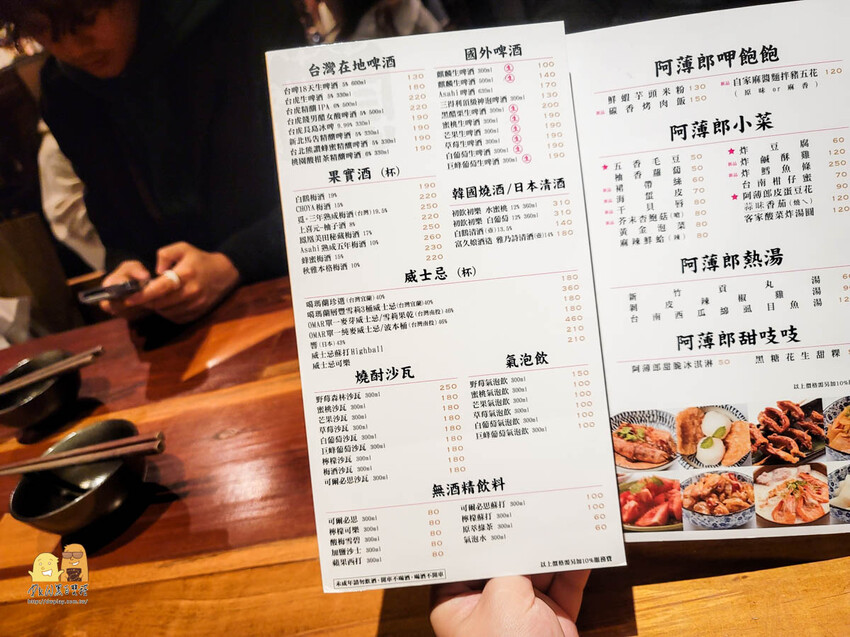 台灣在地啤酒
台啤18天生啤酒 5% 600ml 130
台虎生啤酒 5% 330ml 180
台虎精釀IPA 6% 500ml 220
220
190
190
190
190
國外啤酒
麒麟生啤酒 300ml 生 100
麒麟生啤酒 500ml 生 140
Asahi啤酒 630ml 170
三得利頂級神泡啤酒 300ml 130
黑醋栗生啤酒 300ml 生 200
蜜桃生啤酒 300ml 生 190
芒果生啤酒 300ml 生 190
草莓生啤酒 300ml 生 190
白葡萄生啤酒 300ml 生 190
巨峰葡萄生啤酒 300ml 生 190
果實酒 (杯)
白鶴梅酒 19% 190
CHOYA梅酒 15% 220
覓·三年熟成梅酒(台灣)19.5% 250
上喜元·柚子酒 8% 250
鳳凰美田秘藏梅酒 17% 250
Asahi熟成五年梅酒 10% 260
蜂蜜梅酒 15% 230
秋雅本格梅酒 10%
韓國燒酒/日本清酒
初飲初樂 水蜜桃 12% 360ml 310
初飲初樂 白葡萄 12% 360ml 310
白鶴清酒(壺)13.5% 140
富久娘酒造 雅乃詩清酒(壺)14% 180
威士忌 (杯)
噶瑪蘭珍選(台灣宜蘭)40% 180
噶瑪蘭層疊雪莉3桶威士忌(台灣宜蘭)40% 360
OMAR單一麥芽威士忌/雪莉果乾(台灣南投)46% 180
OMAR單一純麥威士忌/波本桶(台灣南投)46% 180
響(日本)43% 460
威士忌蘇打Highball 210
威士忌可樂 210
燒酎沙瓦
野莓森林沙瓦 300ml 250
蜜桃沙瓦 300ml 180
芒果沙瓦 300ml 180
草莓沙瓦 300ml 180
白葡萄沙瓦 300ml 180
巨峰葡萄沙瓦 300ml 180
檸檬沙瓦 300ml 180
梅酒沙瓦 300ml 180
可爾必思沙瓦 300ml 180
氣泡飲
野莓氣泡飲 300ml 150
蜜桃氣泡飲 300ml 100
芒果氣泡飲 300ml 100
草莓氣泡飲 300ml 100
白葡萄氣泡飲 300ml 100
巨峰葡萄氣泡飲 300ml 100
無酒精飲料
可爾必思 300ml 80
檸檬可樂 300ml 80
酸梅雪碧 300ml 80
加鹽沙士 300ml 60
蘋果西打 300ml 60
可爾必思蘇打 300ml 100
檸檬蘇打 300ml 100
原萃綠茶 300ml 60
氣泡水 300ml 60
未成年請勿飲酒,開車不喝酒,喝酒不開車
以上價格需另加10%服務費
阿薄郎呷飽飽
鮮蝦芋頭米粉 130
碳香烤肉飯 150
自家麻醬麵拌豬五花 120
(原味or麻香)
阿薄郎小菜
五香毛豆 50
柚香蘿蔔 50
裙帶絲 60
海蜇皮 70
干貝唇 80
芥末杏鮑菇(蜷) 80
黃金泡菜 80
麻辣鮮蛤(辣) 80
炸豆腐 60
炸鹹酥雞
炸鱈魚條 250
台南柑仔蜜
阿薄郎皮蛋豆花
蒜味香茄(燒乀)
客家酸菜炸湯圓
阿薄郎熱湯
新竹貢丸湯 60
剝皮辣椒雞湯
台南西瓜綿虱目魚湯
阿薄郎甜吱吱
阿薄郎甜脆冰淇淋 50
黑糖花生甜粿
以上價格需另加10%